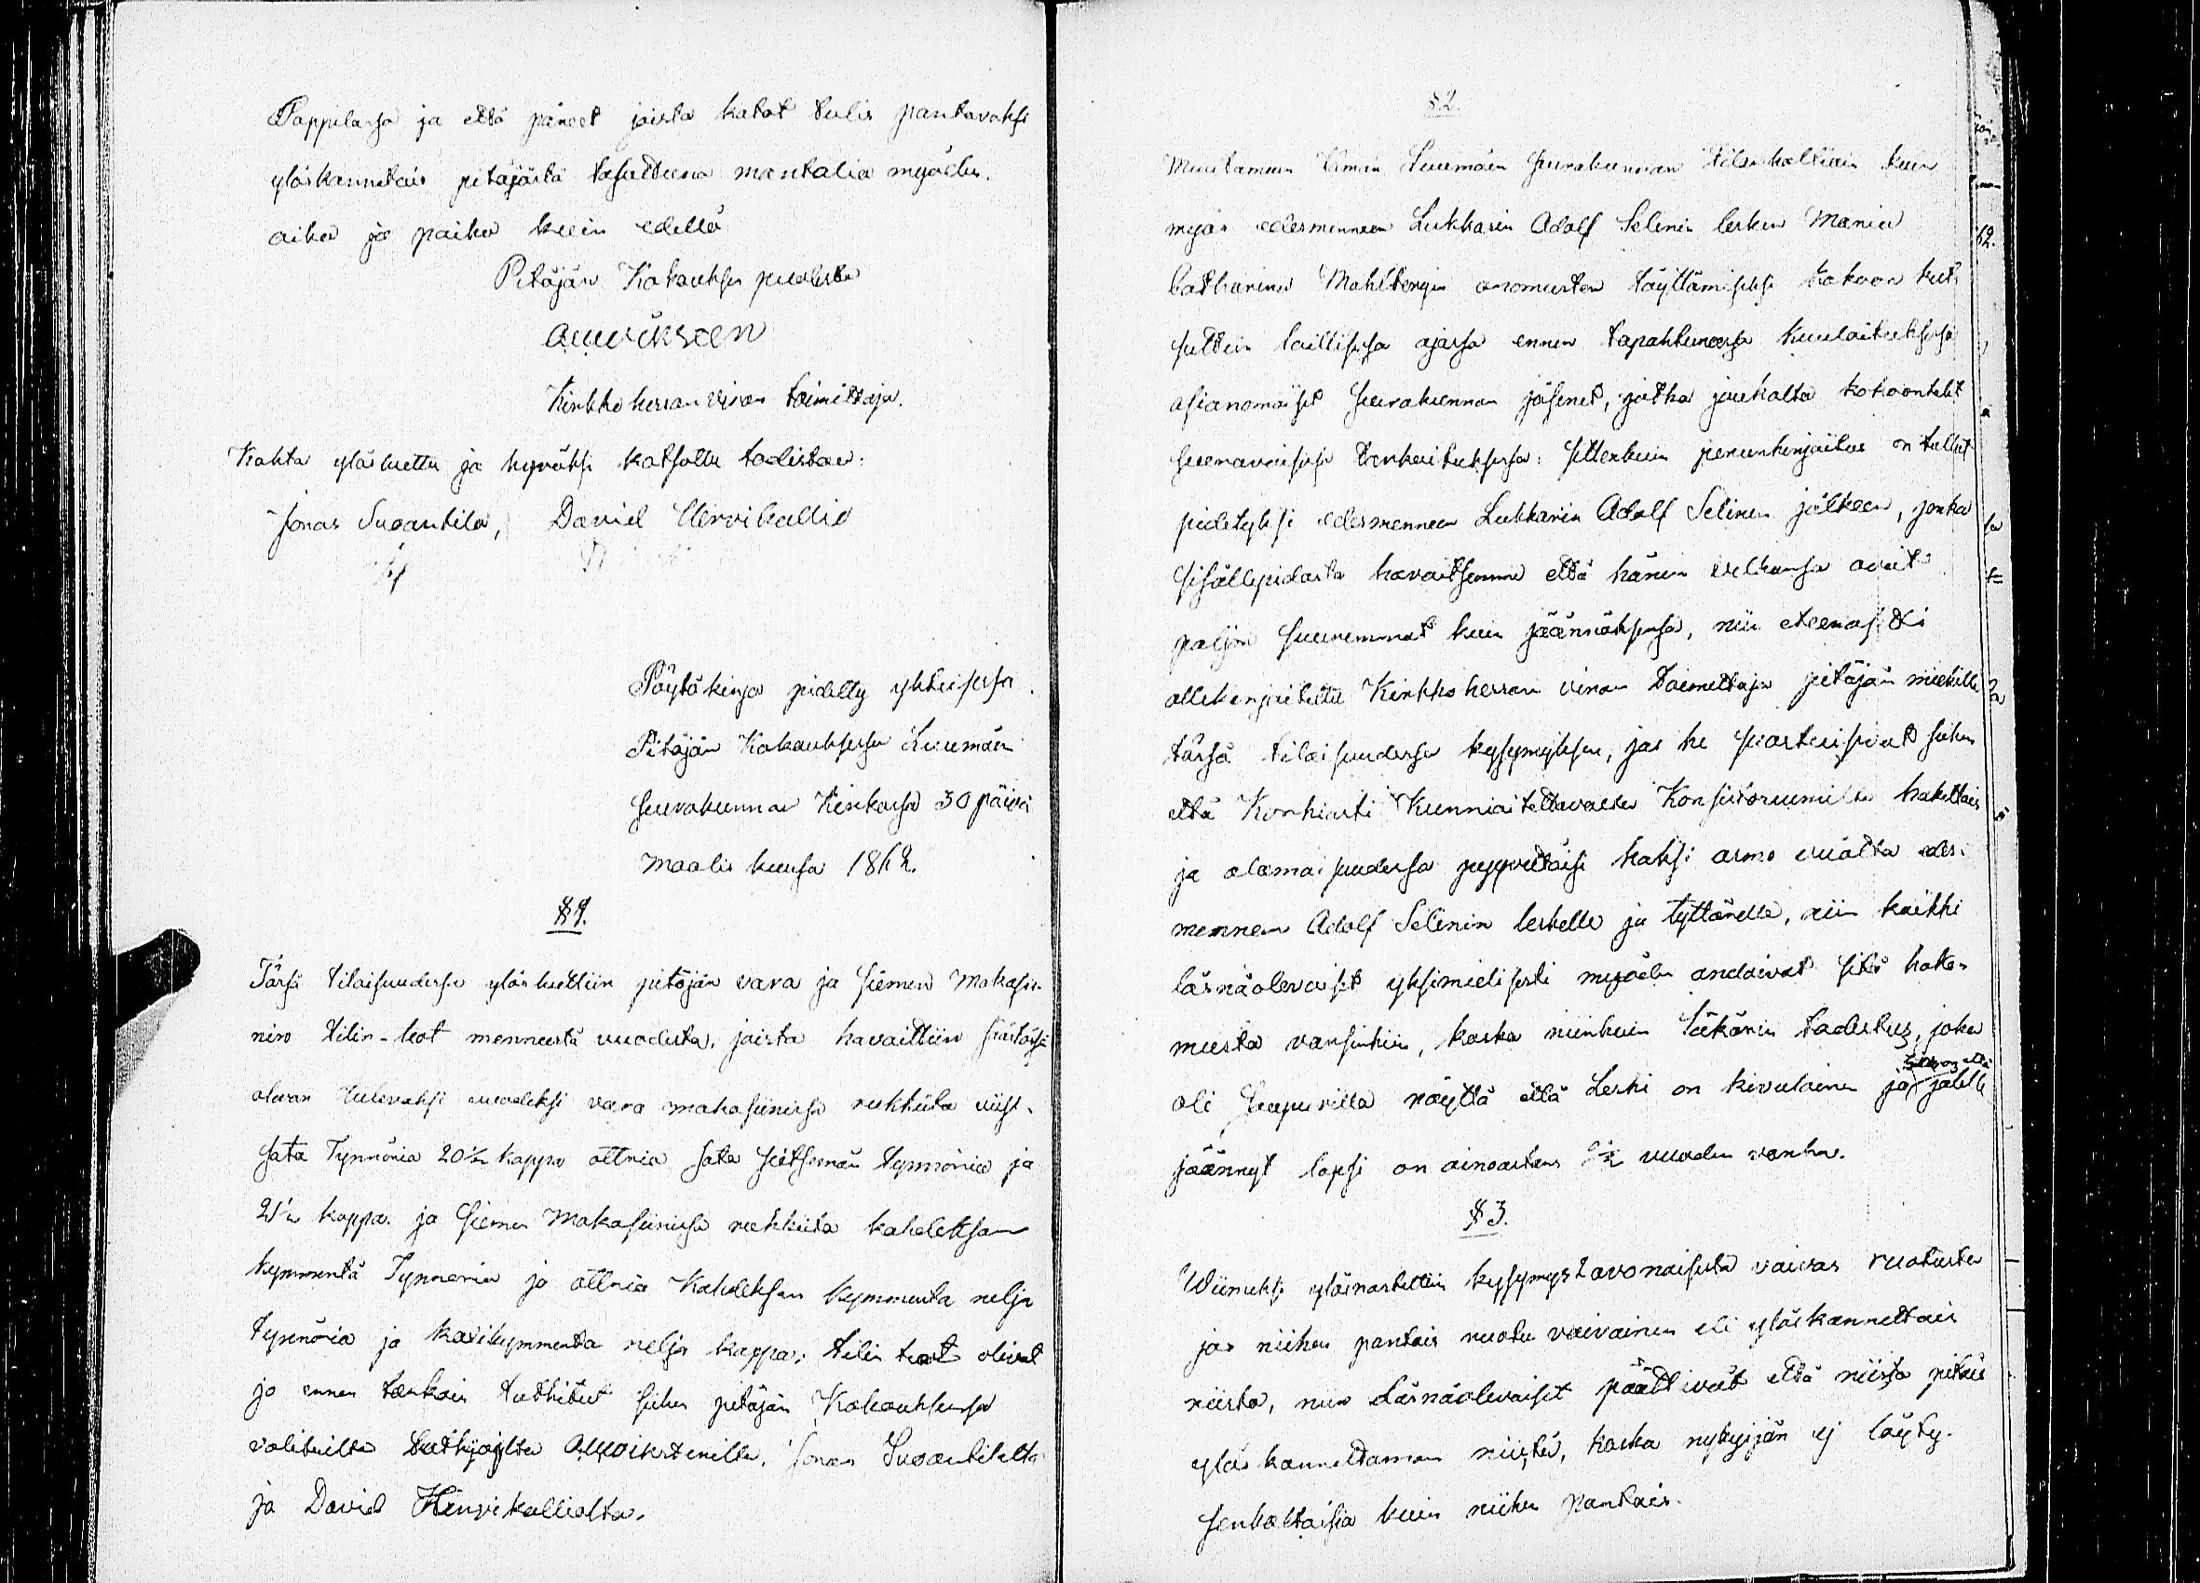 Pappilassa ja että päneet joista katot tulis pantavaksi
yläskannetais pitäjästä tasattuna mantalia myöden.
aika ja paika kuin edellä
Pitäjän Kokouksen puolesta
A. Wikstén
Kirkkoherran viran toimittaja.
Kohta ylösluettu ja hyväksi katsottu todistaa:
Jonas Suoantila, David Hirvikallio
Pöytäkirja pidetty yhteisessä
Pitäjän Kokouksessa Luumäen
seurakunnan Kirkossa 30 päivä
maalis kuussa 1862.
§ 1.
Tässä tilaisuudessa ylösluettiin pitäjän vara ja siemen Makasi-
nin tilin-teot menneestä vuodesta, joista havaittiin säästössä
olevan tulevaksi vuodeksi vara makasiinissa rukkiita viisi-
sata Tynnöria 20½ kappa ottria sata seitsemän tynnöriä ja
21½ kappa. ja siemen Makasiinissa rukkiita kahdeksan
kymmentä Tynneria ja ottria Kahdeksan kymmenta nelja
tynnöria ja kaxikymmenta nelja kappa; tilin teot olivat
jo ennen tarkoin tutkitut siihen pitäjän Kokouksessa
valituilta tutkijoilta A. Wikstenilta, Jonas Suoantilalta
ja David Hirvikalliolta.
§ 2.
Muutamain tämän Luumäen seurakunnan tilanhaltiain kuin
myös edesmenneen Lukkarin Adolf Selinin lesken Maria
Catharina Mahlbergin anomusten täyttämiseksi kokoon kut-
suttiin laillisessa ajassa ennen tapahtuneessa kuulutuksessa
asianomaiset seurakunnan jäsenet, jotka joukolta kokoontulit
seuraavaisessa tarkoituksessa: sittenkuin perunkirjoitus on tullut
pidetyksi edesmenneen Lukkarin Adolf Selinin jälkeen, jonka
sisällepidosta havaitsemme että hänen velkansa ovat
paljon suuremmat kuin jäännöksensä, niin eteenasetti
allekirjoitettu Kirkkoherran viran Toimittaja pitäjän miehille
tässä tilaisuudessa kysymyksen, jos he suostuisivat siihen
että Korkiasti Kunnioitettavalta Konsistoriumilta haettais
ja alamaisuudessa pyyvettäisi kaksi armo vuotta edes-
menneen Adolf Selinin leskelle ja tyttärelle, niin kaikki
läsnäolevaiset yksimielisesti myöden andoivat sitä hake-
musta vanhinkin, koska niinkuin Läkärin todistus, joka
oli saapuvilla näyttä että Leski on kivulainen ja jälelle
jäännyt lapsi on ainoastans 2½ vuoden vanha.
§ 3.
Wiimeksi ylösnostettiin kysymys 2 avonaisesta vaivas ruotusta
jos niihin pantais ruotu vaivainen eli yläskannettais
niistä, niin Läsnäolevaiset päättivät että niistä pitäis
yläs kannettaman niistä, koska nykyjän ej löyty
senkaltaisia kuin niihin pantais.